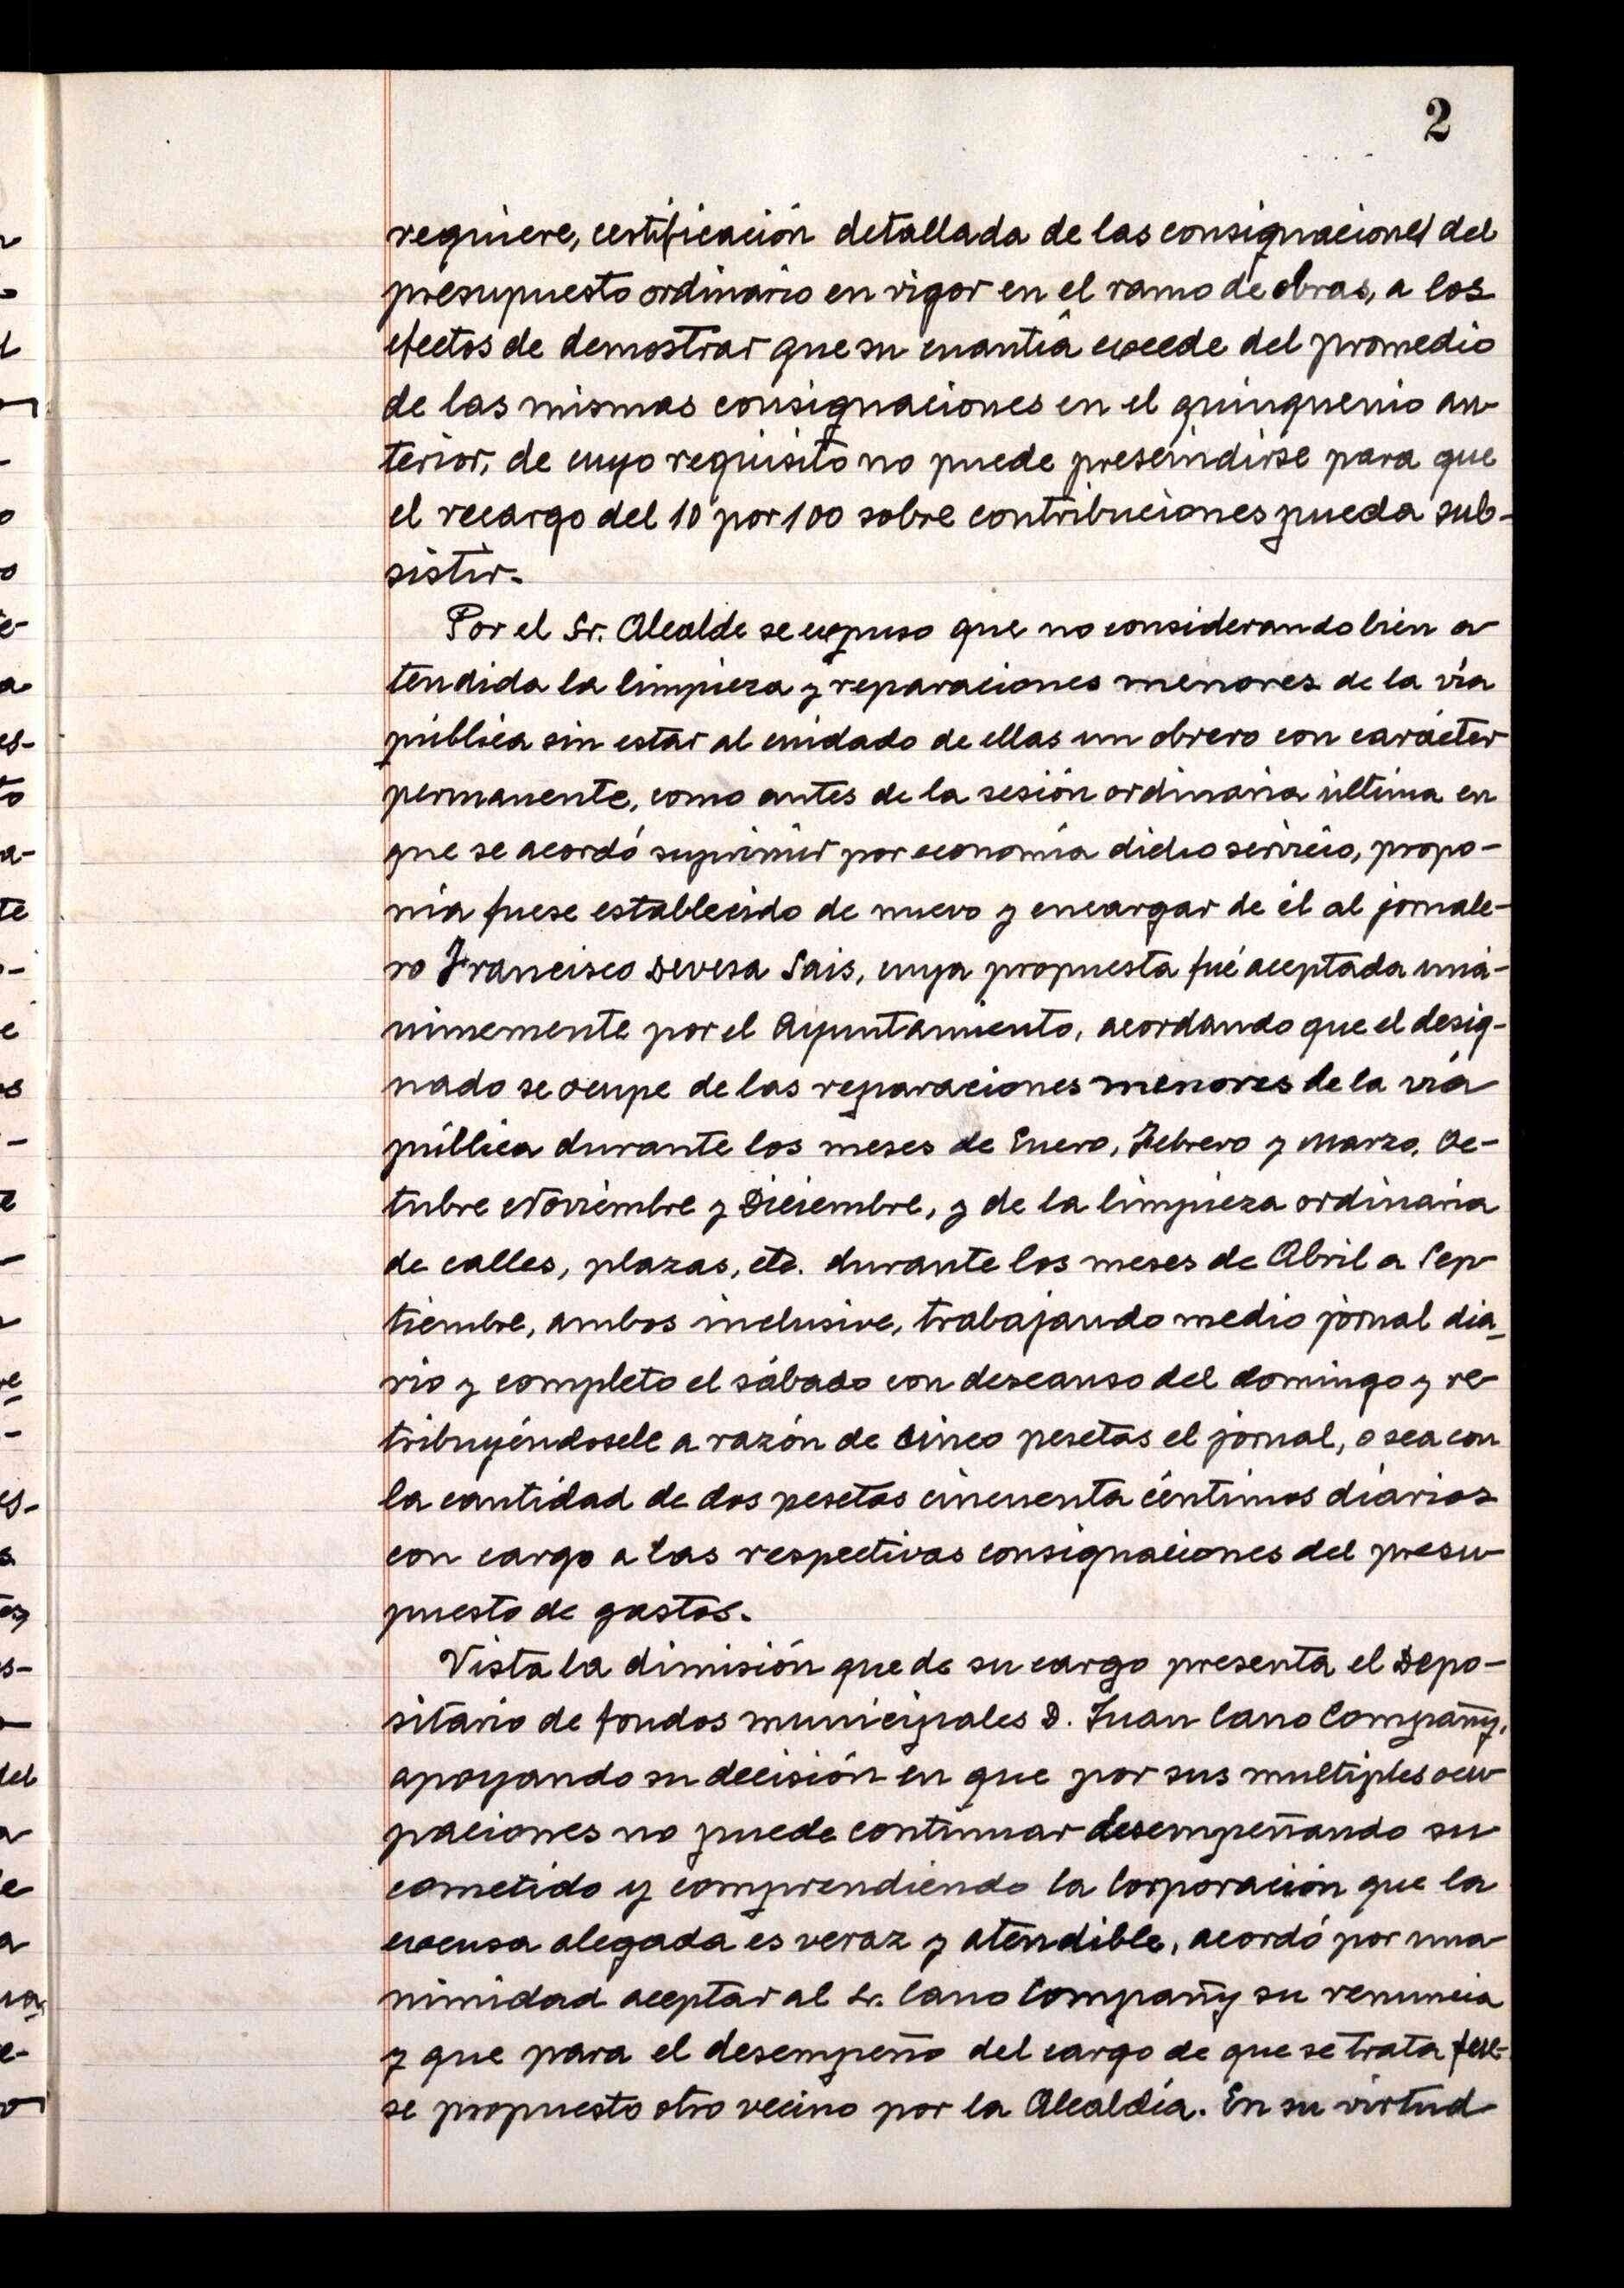 2
requiere, certificación detallada de las consignaciones del
presupuesto ordinario en vigor en el ramo de obras, a los
efectos de demostrar que su cuantía excede del promedio
de las mismas consignaciones en el quinquenio an-
terior, de cuyo requisito no puede prescindirse para que
el recargo del 10 por 100 sobre contribuciones pueda sub-
sistir.
Por el Sr. Alcalde se expuso que no considerando bien a-
tendida la limpieza y reparaciones menores de la vía
pública sin estar al cuidado de ellas un obrero con carácter
permanente, como antes de la sesión ordinaria última en
que se acordó suprimir por economía dicho servicio, propo-
nía fuese establecido de nuevo y encargar de él al jornale-
ro Francisco Devesa Sais, cuya propuesta fué aceptada uná-
nimemente por el Ayuntamiento, acordando que el desig-
nado se ocupe de las reparaciones menores de la vía
pública durante los meses de Enero, Febrero y Marzo, Oc-
tubre Noviembre y Diciembre, y de la limpieza ordinaria
de calles, plazas, etc. durante los meses de Abril a Sep-
tiembre, ambos inclusive, trabajando medio jornal dia-
rio y completo el sábado con descanso del domingo y re-
tribuyéndosele a razón de cinco pesetas el jornal, o sea con
la cantidad de dos pesetas cincuenta céntimos diarios
con cargo a las respectivas consignaciones del presu-
puesto de gastos.
Vista la dimisión que de su cargo presenta el Depo-
sitario de fondos municipales D. Juan Cano Compañy,
apoyando su decisión en que por sus multiples ocu-
paciones no puede continuar desempeñando su
cometido y comprendiendo la Corporación que la
excusa alegada es veraz y atendible, acordó por una-
nimidad aceptar al Sr. Cano Compañy su renuncia
y que para el desempeño del cargo de que se trata fue-
se propuesto otro vecino por la Alcaldía. En su virtud